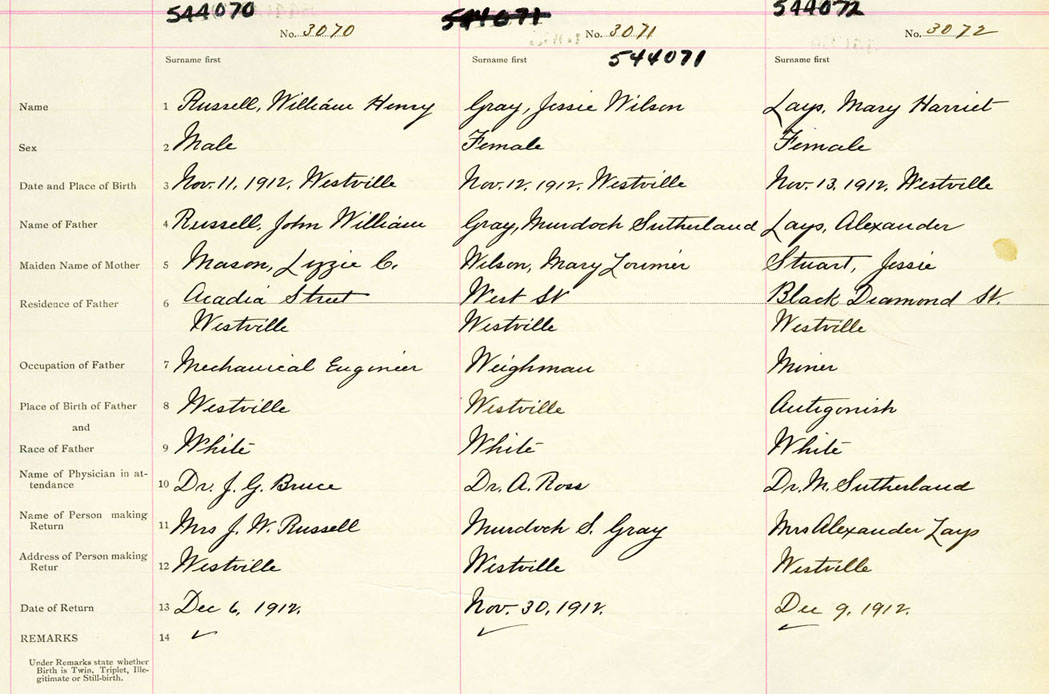 544070 544071 544072
No. 3070 No. 3071 No. 3072
544071
Surname first Surname first Surname first
Name 1 Russell, William Henry Gray, Jessie Wilson Lays, Mary Harriet
Sex 2 Male Female Female
Date and Place of Birth 3 Nov. 11, 1912, Westville Nov. 12, 1912, Westville Nov. 13, 1912, Westville
Name of Father 4 Russell, John William Gray, Murdoch Sutherland Lays, Alexander
Maiden Name of Mother 5 Mason, Lyzie C. Wilson, Mary Lorimer Stuart, Jessie
Residence of Father 6 Acadia Street West St Black Diamond St.
Westville Westville Westville
Occupation of Father 7 Mechanical Engineer Weighman Miner
Place of Birth of Father 8 Westville Westville Antigonish
and
Race of Father 9 White White White
Name of Physician in at-
tendance 10 Dr. J. G. Bruce Dr. A. Ross Dr. M. Sutherland
Name of Person making
Return 11 Mrs J. W. Russell Murdoch S. Gray Mrs Alexander Lays
Address of Person making
Retur 12 Westville Westville Westville
Date of Return 13 Dec 6, 1912. Nov. 30, 1912. Dec 9, 1912.
REMARKS 14 ✓ ✓ ✓
Under Remarks state whether
Birth is Twin, Triplet, Ille-
gitimate or Still-birth.